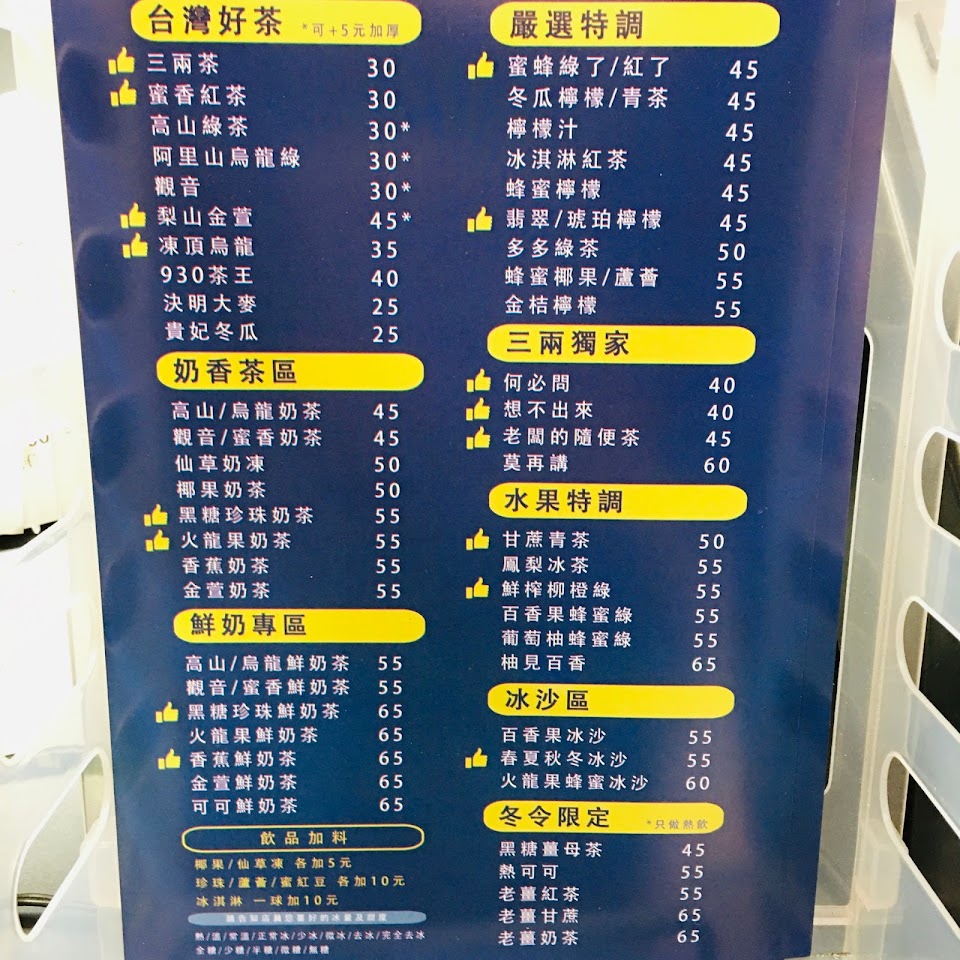 台灣好茶 *可+5元加厚
三兩茶 30
蜜香紅茶 30
高山綠茶 30*
阿里山烏龍綠 30*
觀音 30*
梨山金萱 45*
凍頂烏龍 35
930茶王 40
決明大麥 25
貴妃冬瓜 25
奶香茶區
高山/烏龍奶茶 45
觀音/蜜香奶茶 45
仙草奶凍 50
椰果奶茶 50
黑糖珍珠奶茶 55
火龍果奶茶 55
香蕉奶茶 55
金萱奶茶 55
鮮奶專區
高山/烏龍鮮奶茶 55
觀音/蜜香鮮奶茶 55
黑糖珍珠鮮奶茶 65
火龍果鮮奶茶 65
香蕉鮮奶茶 65
金萱鮮奶茶 65
可可鮮奶茶 65
飲品加料
椰果/仙草凍 各加5元
珍珠/蘆薈/蜜紅豆 各加10元
冰淇淋 一球加10元
請告知店員您喜好的冰量及甜度
熱/溫/常溫/正常冰/少冰/微冰/去冰/完全去冰
全糖/少糖/半糖/微糖/無糖
嚴選特調
蜜蜂綠了/紅了 45
冬瓜檸檬/青茶 45
檸檬汁 45
冰淇淋紅茶 45
蜂蜜檸檬 45
翡翠/琥珀檸檬 45
多多綠茶 50
蜂蜜椰果/蘆薈 55
金桔檸檬 55
三兩獨家
何必問 40
想不出來 40
老闆的隨便茶 45
莫再講 60
水果特調
甘蔗青茶 50
鳳梨冰茶 55
鮮榨柳橙綠 55
百香果蜂蜜綠 55
葡萄柚蜂蜜綠 55
柚見百香 65
冰沙區
百香果冰沙 55
春夏秋冬冰沙 55
火龍果蜂蜜冰沙 60
冬令限定 *只做熱飲
黑糖薑母茶 45
熱可可 55
老薑紅茶 55
老薑甘蔗 65
老薑奶茶 65